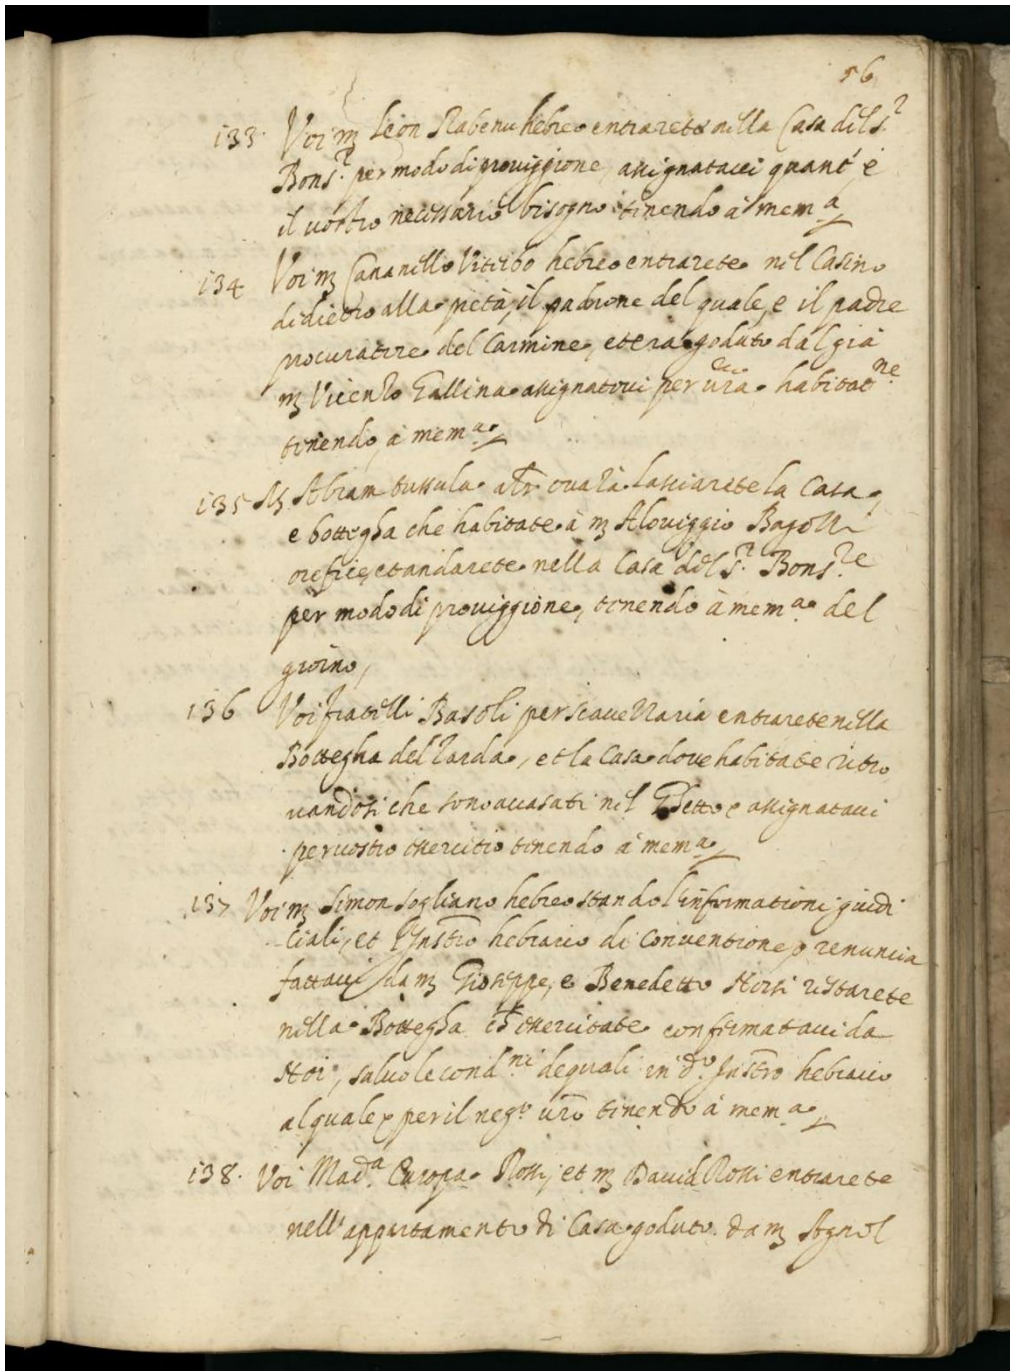 56
133. Voi m Leon Rabenu hebreo entrarete nella Casa del S.r
Bons.r per modo di proviggione, assignatavi quant' è
il vostro necessario bisogno tenendo à mem.a
134 Voi m Cananello Viterbo hebreo entrarete nel Casino
di dietro alla pietà, il padrone del quale, e il padre
procuratore del Carmine, et era goduto dal già
m Vicenzo Gallina assignatovi per vra habitat.ne
tenendo, à mem.a
135 M. Abram lasciarete la Casa,
e bottegha che habitate à m Aloviggio
orefice, et andarete nella Casa del S.r Bons.re
per modo di proviggione, tenendo à mem.a del
136 Voi fratelli Basoli per entrarete nella
Bottegha del Zarda, et la Casa dove habitate ritro
vandosi che sono accasati nel Ghetto e assignatavi
per vostro essercitio tenendo à mem.a
137 Voi m Simon sogliano hebreo stando l'informationi giudi
ciali, et l'Instro hebraico di conventione, o renuncia
fattavi da m Gioseppe, e Benedetto Norsi restarete
nella Bottegha ch' essercitate confirmatavi da
Noi, salvo le cond.ni dequali in d.o Instro hebraico
al quale, per il neg.o vro tenendo à mem.a
138. Voi Mad.a Europa Rossi, et m David Rossi entrarete
nell'appartamento di Casa goduto da m Agnol